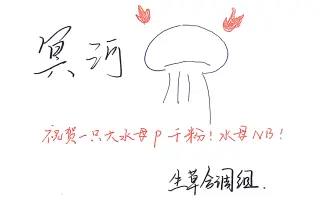 冥河
祝贺一只大水母P千粉!水母NB!
生草会调组.